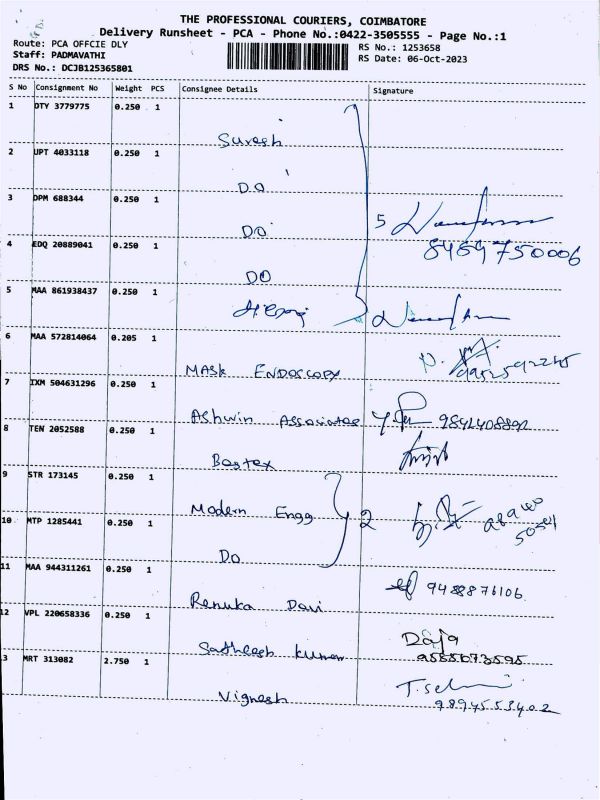 THE PROFESSIONAL COURIERS, COIMBATORE
Delivery Runsheet - PCA - Phone No.:0422-3505555 - Page No.:1
Route: PCA OFFCIE DLY
RS No.: 1253658
Staff: PADMAVATHI
RS Date: 06-Oct-2023
DRS No.: DCJB125365801
S No Consignment No Weight PCS Consignee Details Signature
1 DTY 3779775 0.250 1
Suresh
2 UPT 4033118 0.250 1
DO
3 DPM 688344 0.250 1
DO 5
4 EDQ 20889041 0.250 1
DO
5 MAA 861938437 0.250 1
6 MAA 572814064 0.205 1
MASK ENDOSCOPY
7 IXM 504631296 0.250 1
Ashwin Associates
8 TEN 2052588 0.250 1
Bestex
9 STR 173145 0.250 1
Modern Engg 2
10 MTP 1285441 0.250 1
DO
11 MAA 944311261 0.250 1
9488876106
Renuka Devi
12 VPL 220658336 0.250 1
Satheesh kumar Daja
3 MRT 313082 2.750 1
Vignesh T. Selvi